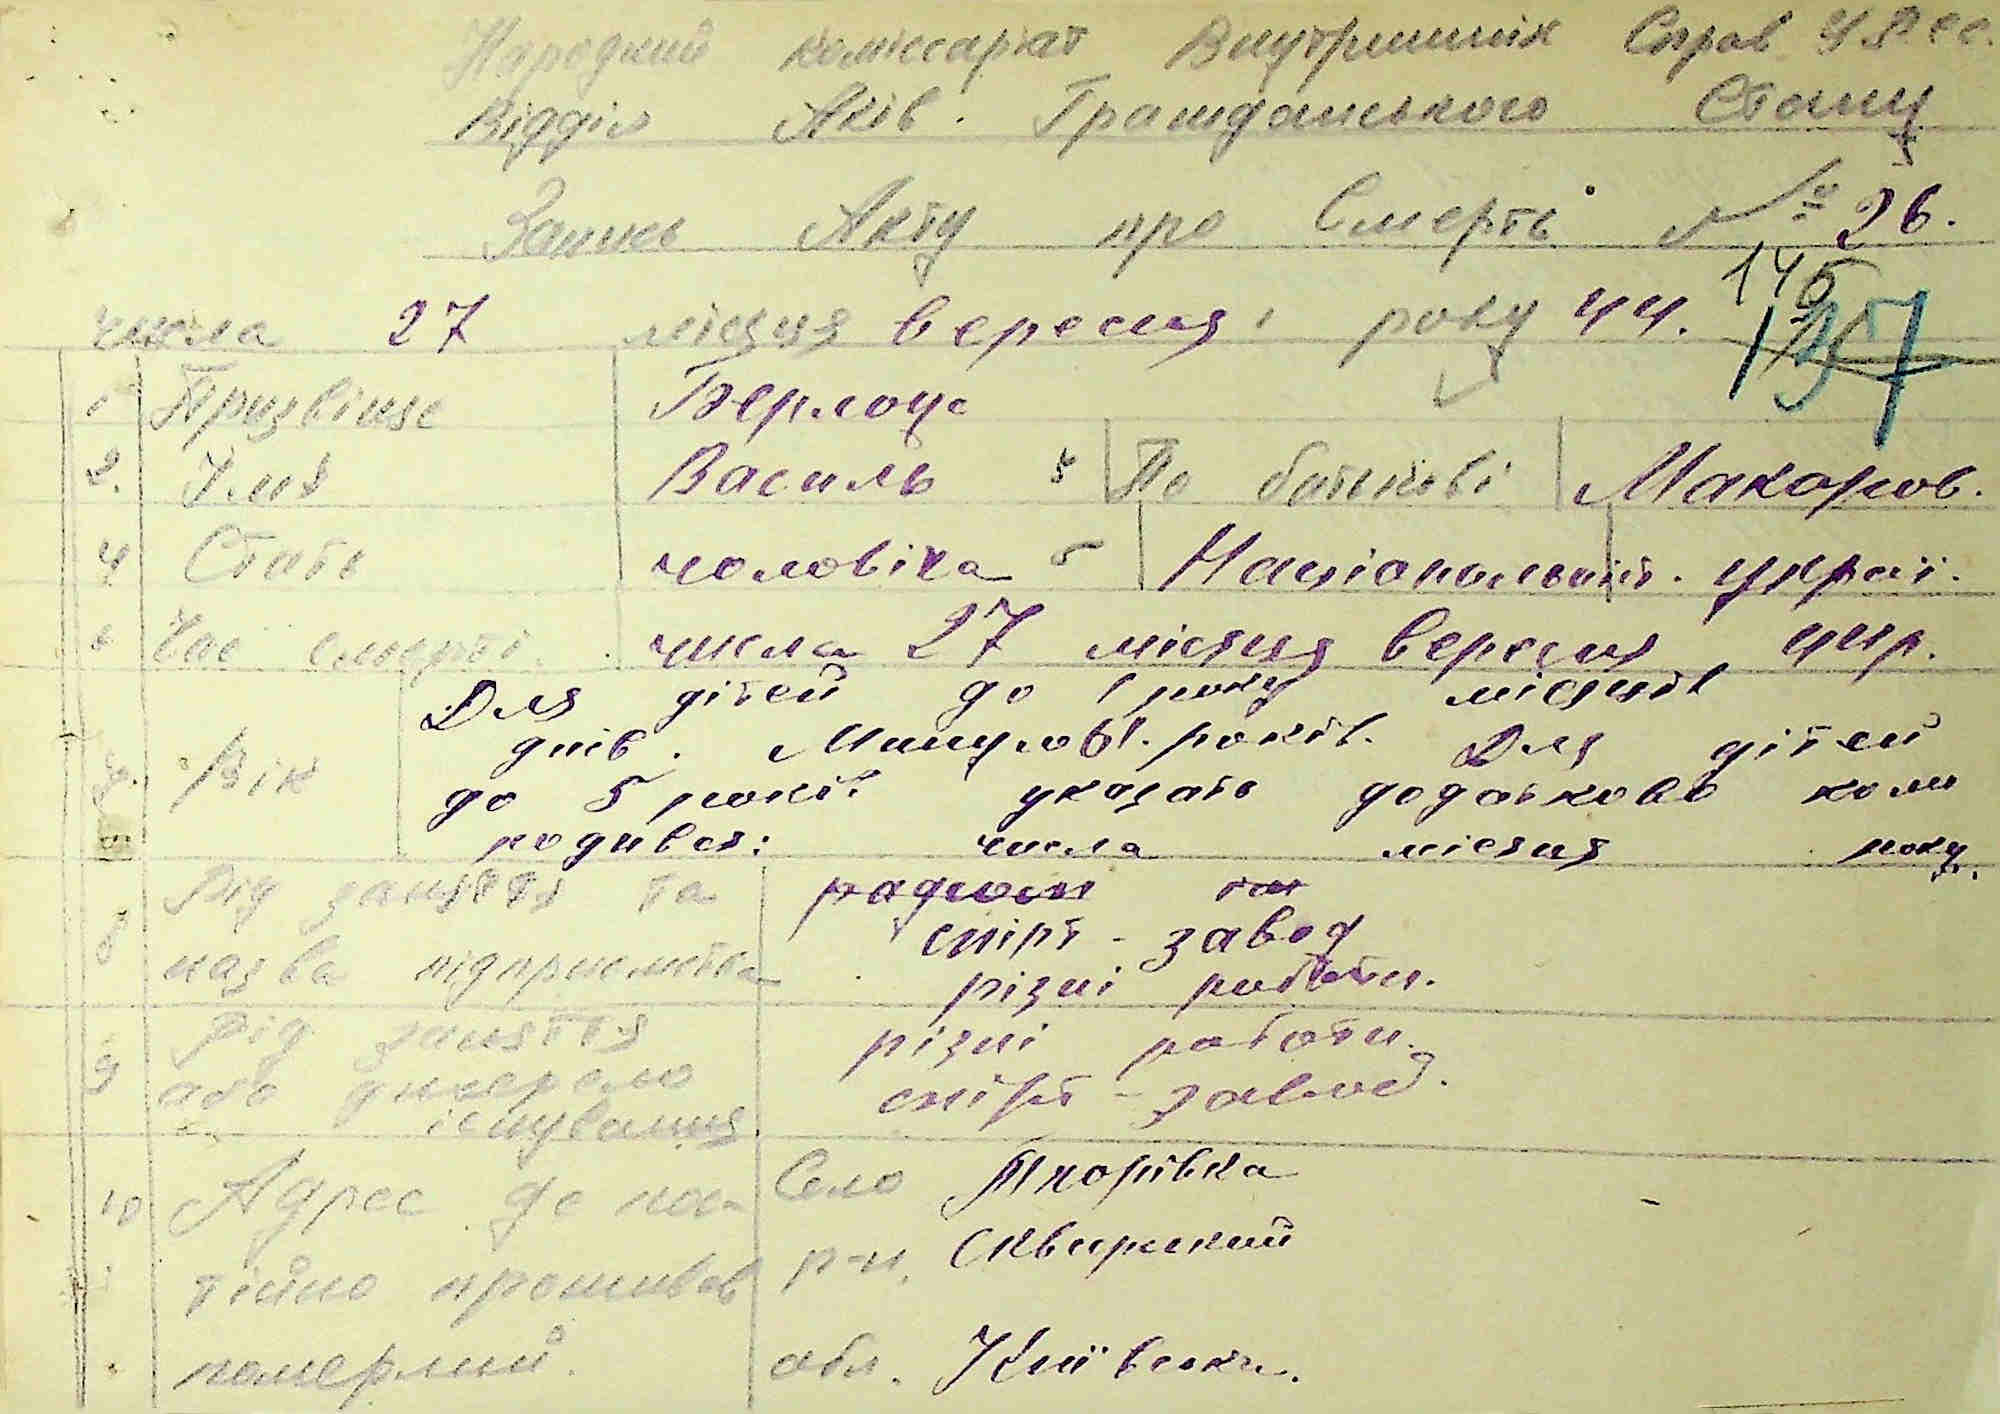 Народний коміссаріат Внутришніх Справ УРСС.
Відділ Актів. Гражданського Стану
Запись Акту про Смерть № 26.
146
137
числа 27 місяця вересня, року 44.
1 Призвіще
2. Імя Василь 3 По батькові Макаров.
4 Стать чоловіча 5 Національніст. украї.
6 Час смерті. числа 27 місяця вересня, 44р.
7. Вік Для дітей до 1 року місяців
днів. Минулов 61. років. Для дітей
до 5 років указать додатково коли
родився: числа місяця року.
8 Рід заняття та
назва підприємства спірт-завод
різні работи.
9 Рід заняття різні работи.
або джерело спірт-завод.
існування
10 Адрес де пос- Село
тійно проживав р-н. Сквирский
померлий. обл. Київська.